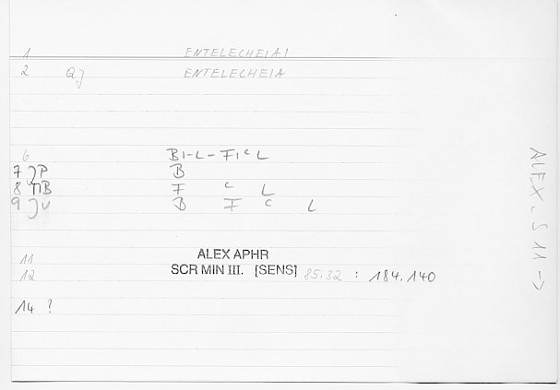 1 ENTELECHEIAI
2 QJ ENTELECHEIA
6 BI-L-FI c L
7 JP B
8 TIB F c L
9 JU B F c L
11 ALEX APHR
12 SCR MIN III. [SENS] 85.32 : 184.140
14 ?
ALEX. S 11 ->